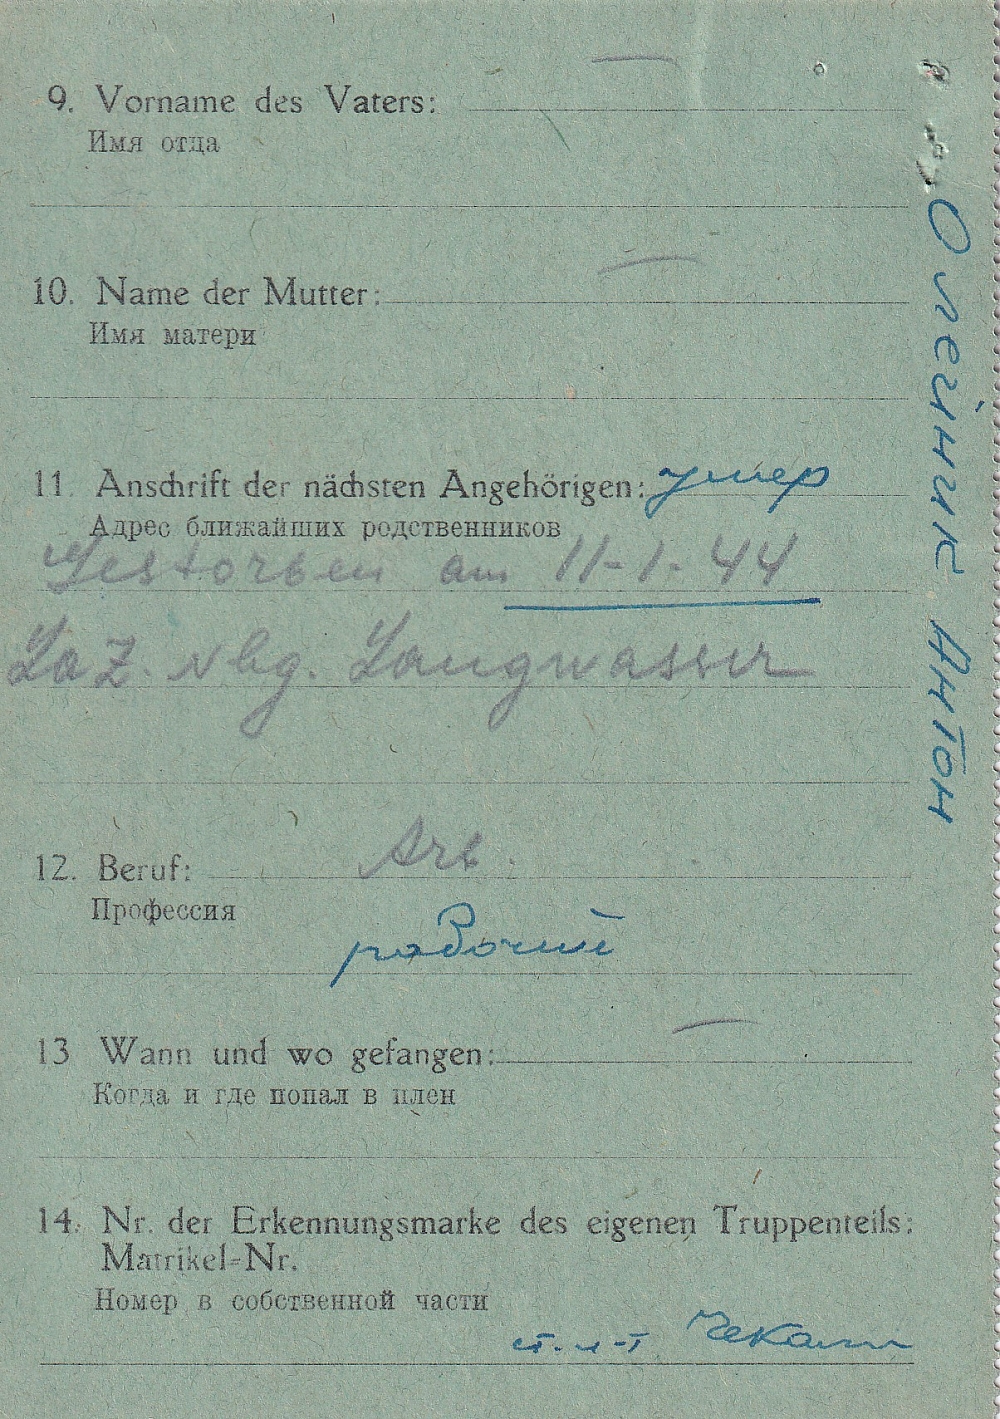 9. Vorname des Vaters:
Имя отца
10. Name der Mutter:
Имя матери
11. Anschrift der nächsten Angehörigen: умер
Адрес ближайших родственников
Gestorben am 11-1-44
Laz. Nbg. Langwasser
12. Beruf: Arb.
Профессия
рабочий
13 Wann und wo gefangen:
Когда и где попал в плен
14. Nr. der Erkennungsmarke des eigenen Truppenteils:
Matrikel-Nr.
Номер в собственной части
ст. л-т
Олейник Антон